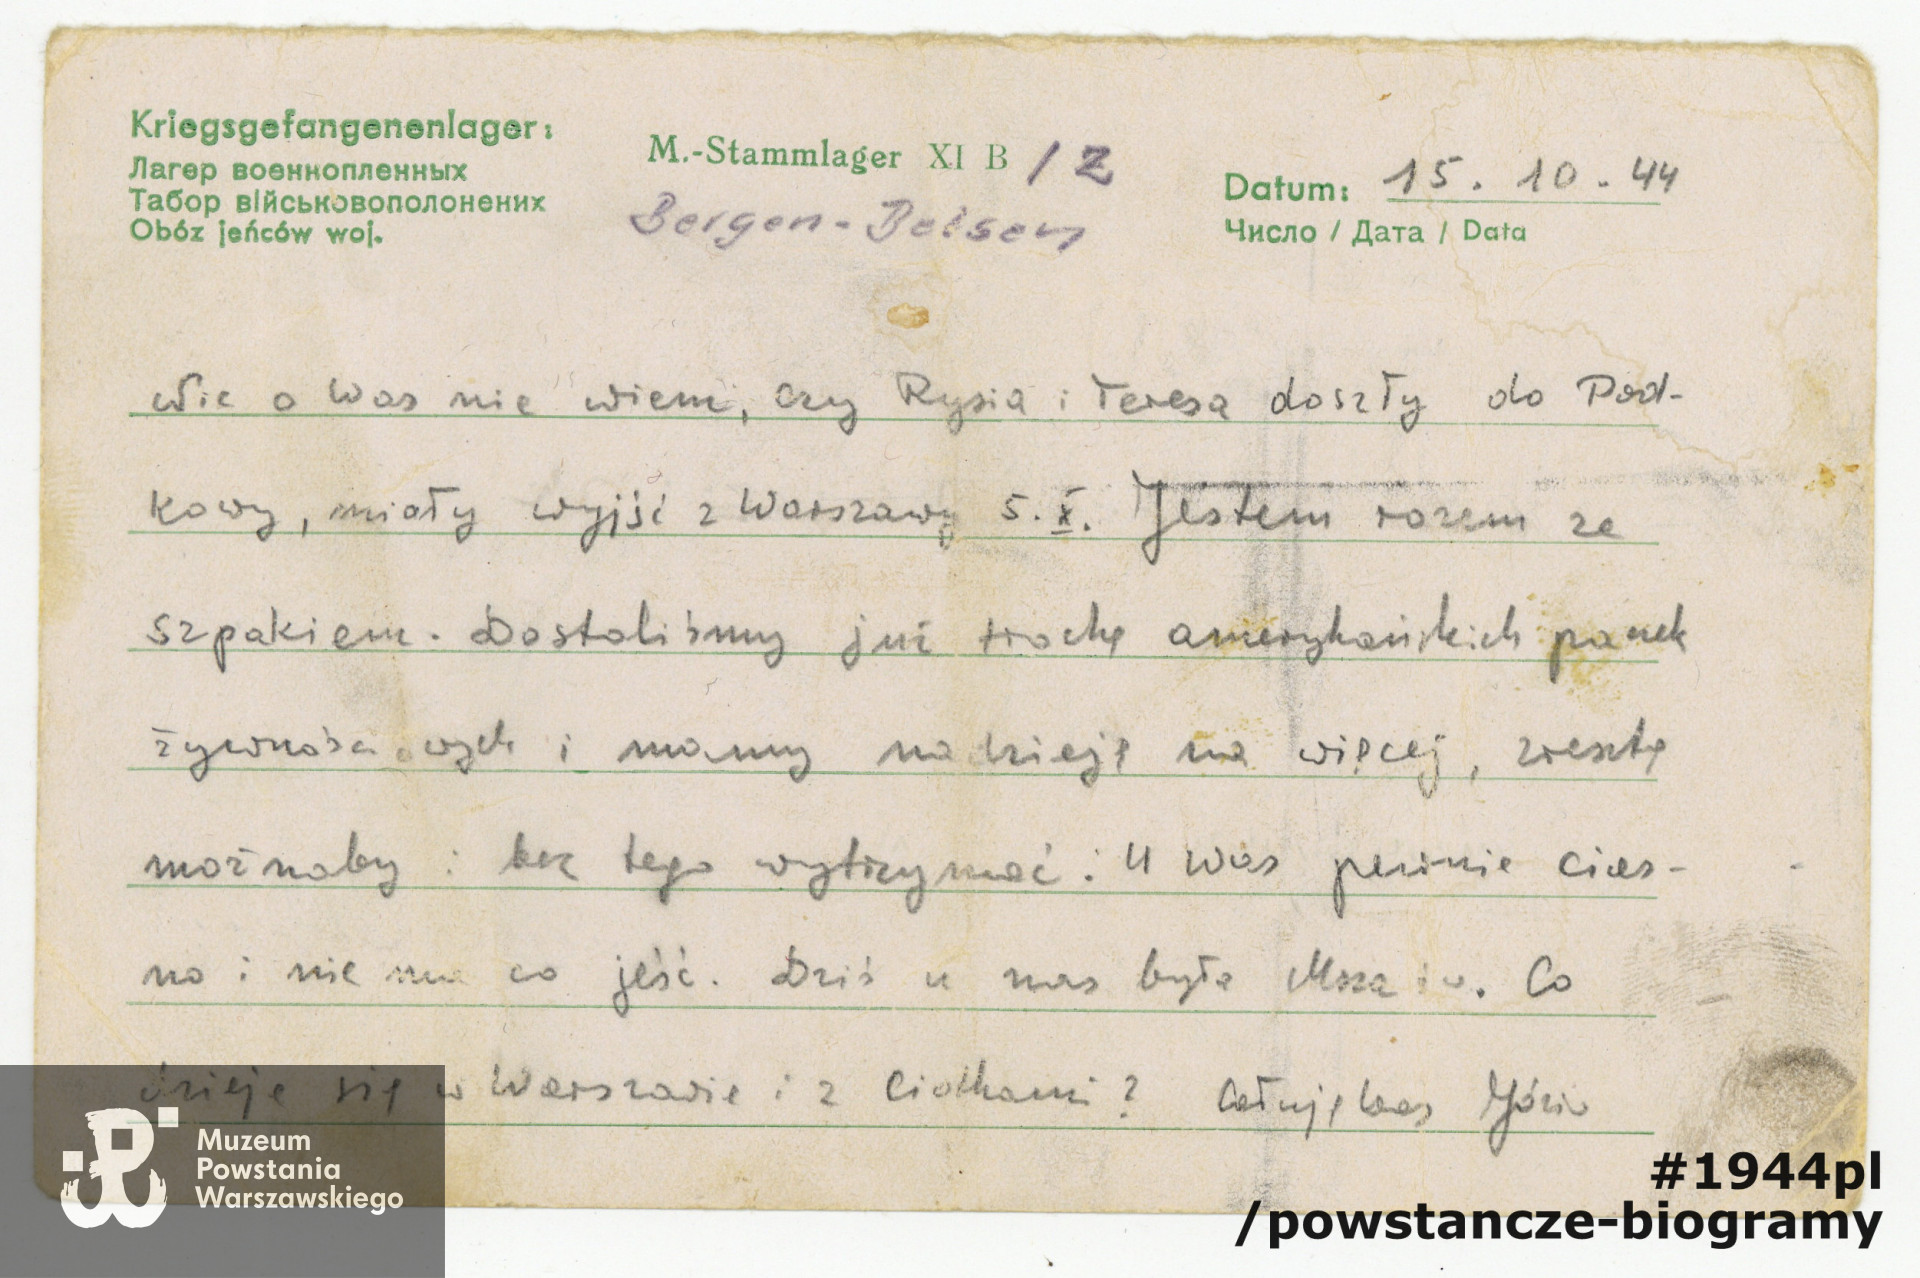 Kriegsgefangenenlager:
Лагер военнопленных
Табор військовополонених
Obóz jeńców woj.
M.-Stammlager XI B / Z
Bergen-Belsen
Datum: 15. 10. 44
Число / Дата / Data
Nic o Was nie wiem, czy Rysia i Teresa doszły do Pod-
kowy, miały wyjść z Warszawy 5. X. Jestem razem ze
szpakiem. Dostaliśmy już trochę amerykańskich paczek
żywnościowych i mamy nadzieję na więcej, zresztę
możnaby i bez tego wytrzymać. U Was pewnie cias-
no i nie ma co jeść. Dziś u nas była Msza św. Co
dzieje się w Warszawie i z Ciotkami? Całuję Was
Muzeum
Powstania
Warszawskiego
#1944pl
/powstancze-biogramy